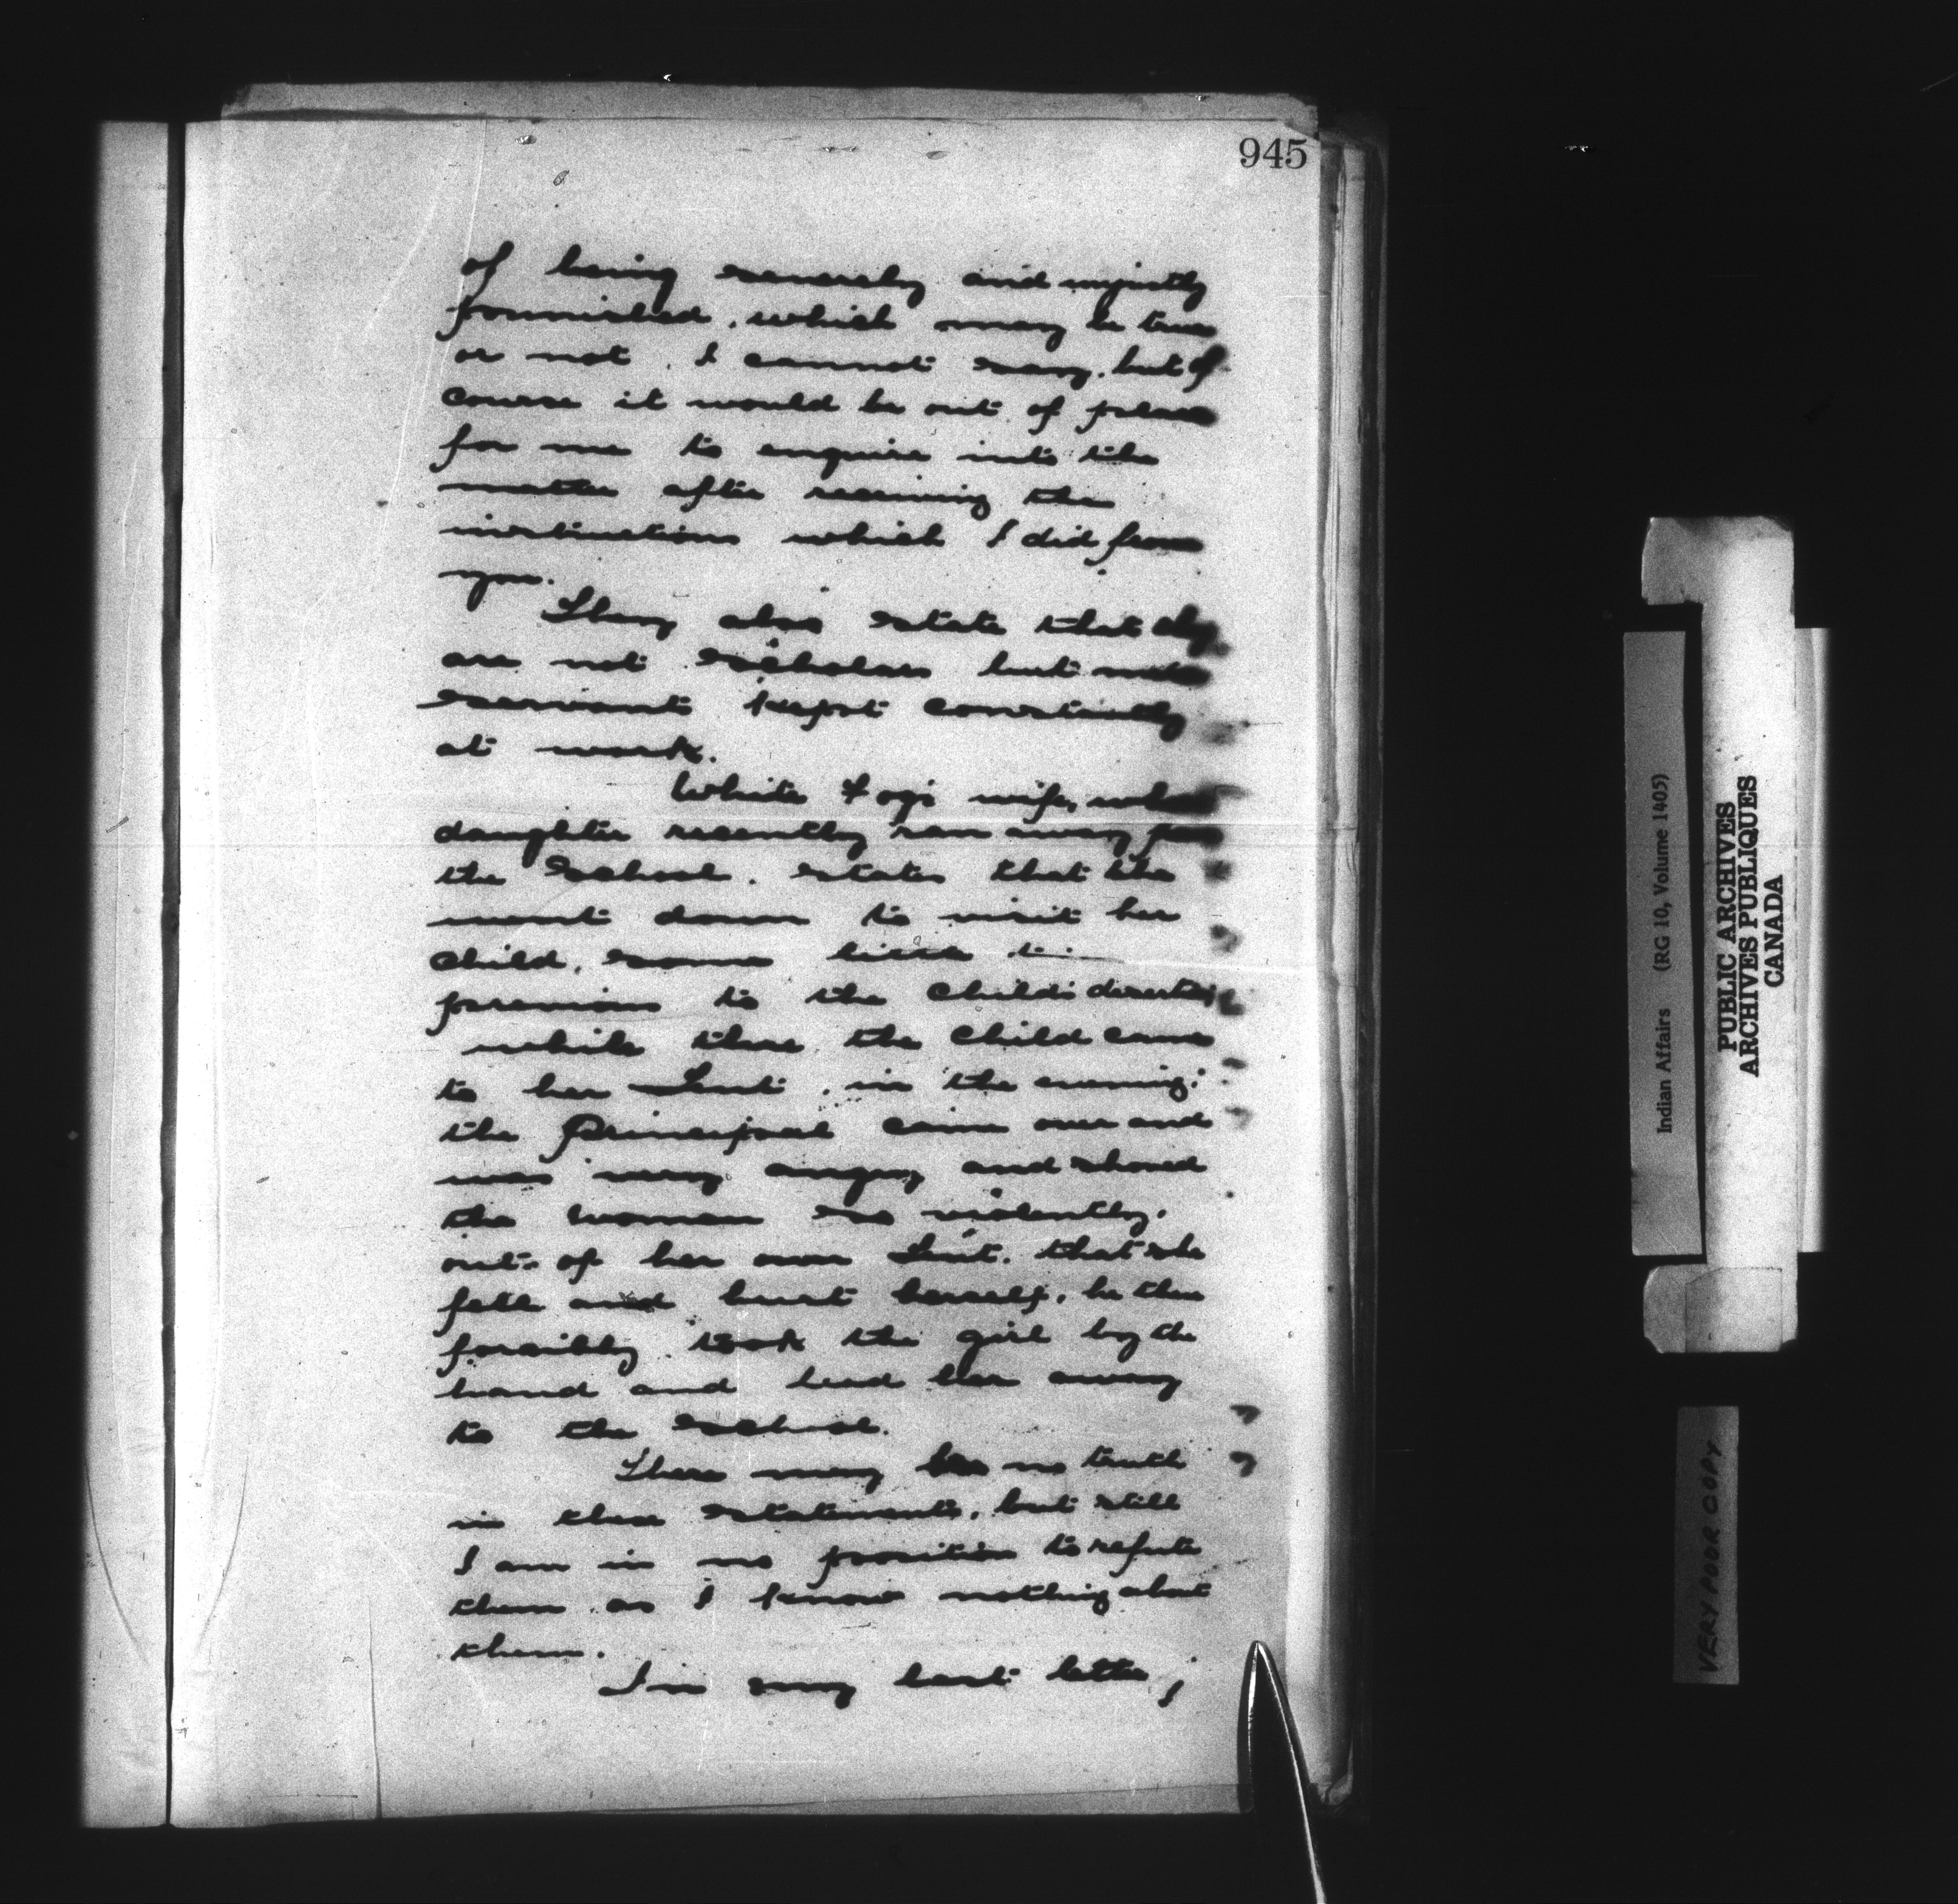 945
of being severely and unjustly
punnished, which may be true
or not, I cannot say, but of
course it would be out of place
for me to enquire into the
matter after receiving the
instructions which I did from
you.
They also state that they
are not scholars but
servants kept constantly
at work.
White wife, whose
daughter recently ran away from
the School, states that she
went down to visit her
child, some little
previous to the child's
while there the child came
to her tent, in the evening:
the Principal came over and
was very angry and shoved
the woman so violently,
out of her own tent, that she
fell and hurt herself, he then
forcibly took the girl by the
hand and lead her away
to the school.
There may be no truth
in these statements, but still
I am in no position to refute
them as I know nothing about
them.
In my last letter,
Indian Affairs (RG 10, Volume 1405)
PUBLIC ARCHIVES
ARCHIVES PUBLIQUES
CANADA
VERY POOR COPY